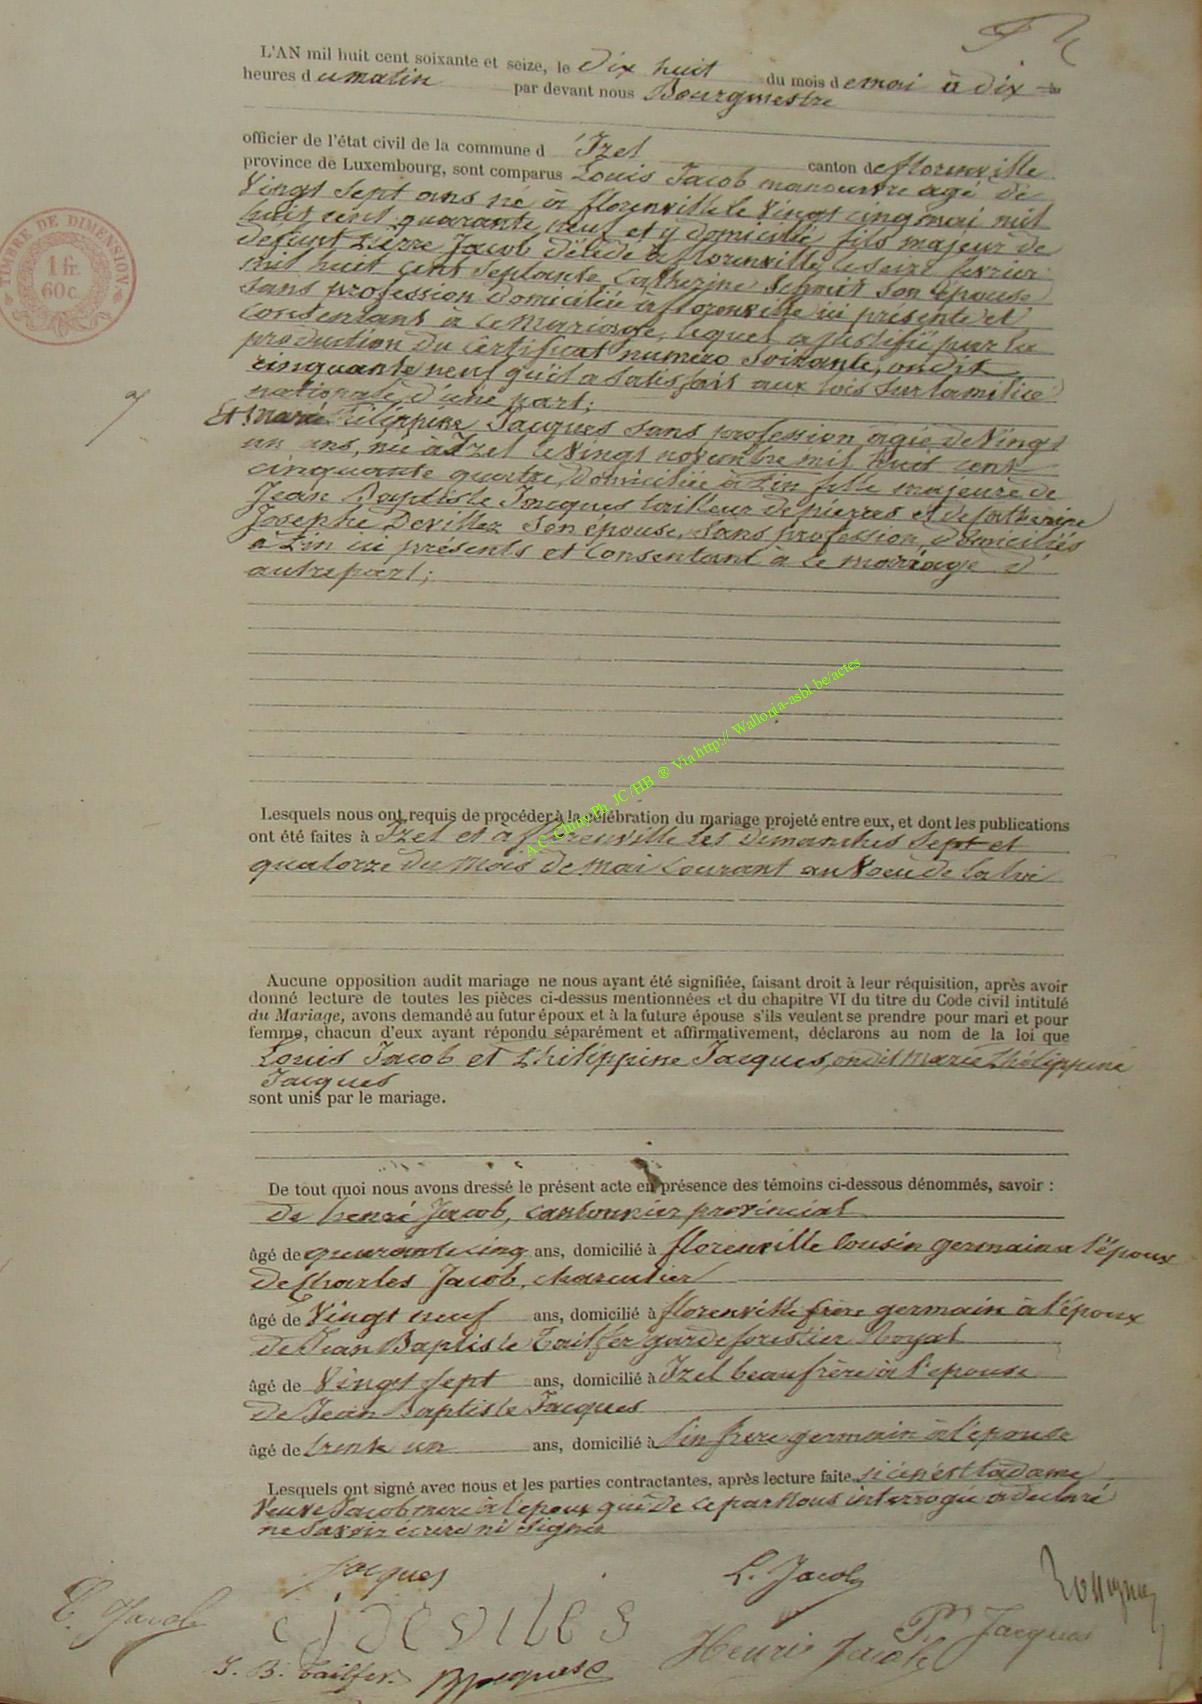 L'AN mil huit cent soixante et seize, le dix huit du mois de mai à dix
heures du matin par devant nous Bourgmestre
officier de l'état civil de la commune d'Izel canton de florenville
province de Luxembourg, sont comparus Louis Jacob manouvre agé de
Vingt sept ans né à florenville le Vingt cinq mai mil
huit cent quarante neuf et y domicilié, fils majeur de
defunt Pierre Jacob décédé à florenville le seize fevrier
mil huit cent septante, Catherine Schmit son épouse
sans profession domiciliée à florenville ici présente et
consentant à ce mariage, lequel a justifié par la
production du certificat numéro soixante, on dit
cinquante neuf qu'il a satisfait aux lois sur la milice
nationale, d'une part;
Et Marie Philippine Jacques sans profession agée de Vingt
un ans, née à Izel le Vingt novembre mil huit cent
cinquante quatre, domiciliée à Pin fille majeure de
Jean Baptiste Jacques tailleur de pierres et de Catherine
Josephe Devillez son epouse, sans profession, domiciliés
à Pin ici présents et consentant à ce mariage d'
autre part;
Lesquels nous ont requis de procéder à la célébration du mariage projeté entre eux, et dont les publications
ont été faites à Izel et à florenville les dimanches sept et
quatorze du mois de mai courant au Voeu de la loi
Aucune opposition audit mariage ne nous ayant été signifiée, faisant droit à leur réquisition, après avoir
donné lecture de toutes les pièces ci-dessus mentionnées et du chapitre VI du titre du Code civil intitulé
du Mariage, avons demandé au futur époux et à la future épouse s'ils veulent se prendre pour mari et pour
femme, chacun d'eux ayant répondu séparément et affirmativement, déclarons au nom de la loi que
Louis Jacob et Philippine Jacques, on dit Marie Philippine
Jacques
sont unis par le mariage.
De tout quoi nous avons dressé le présent acte en présence des témoins ci-dessous dénommés, savoir :
de henri Jacob, cantonnier provincial
âgé de quarante cinq ans, domicilié à florenville cousin germain à l'époux
de Charles Jacob, charcutier
âgé de Vingt neuf ans, domicilié à florenville frère germain à l'époux
de Jean Baptiste Tailfer garde forestier Royal
âgé de Vingt sept ans, domicilié à Izel beaufrère à l'epouse
de Jean Baptiste Jacques
âgé de trente un ans, domicilié à Pin frère germain à l'épouse
Lesquels ont signé avec nous et les parties contractantes, après lecture faite, si ce n'est la dame
Veuve Jacob mere à l'époux qui de ce par Nous interrogée a declaré
ne savoir écrire ni signer
Jacques L. Jacob
C. Jacob c j devilles P. Jacques
J. B. Tailfer. Henri Jacob
TIMBRE DE DIMENSION
1 fr.
60 c.
A.C. Chiny Ph. JC/HB ® Via http:// Wallonia-asbl.be/actes